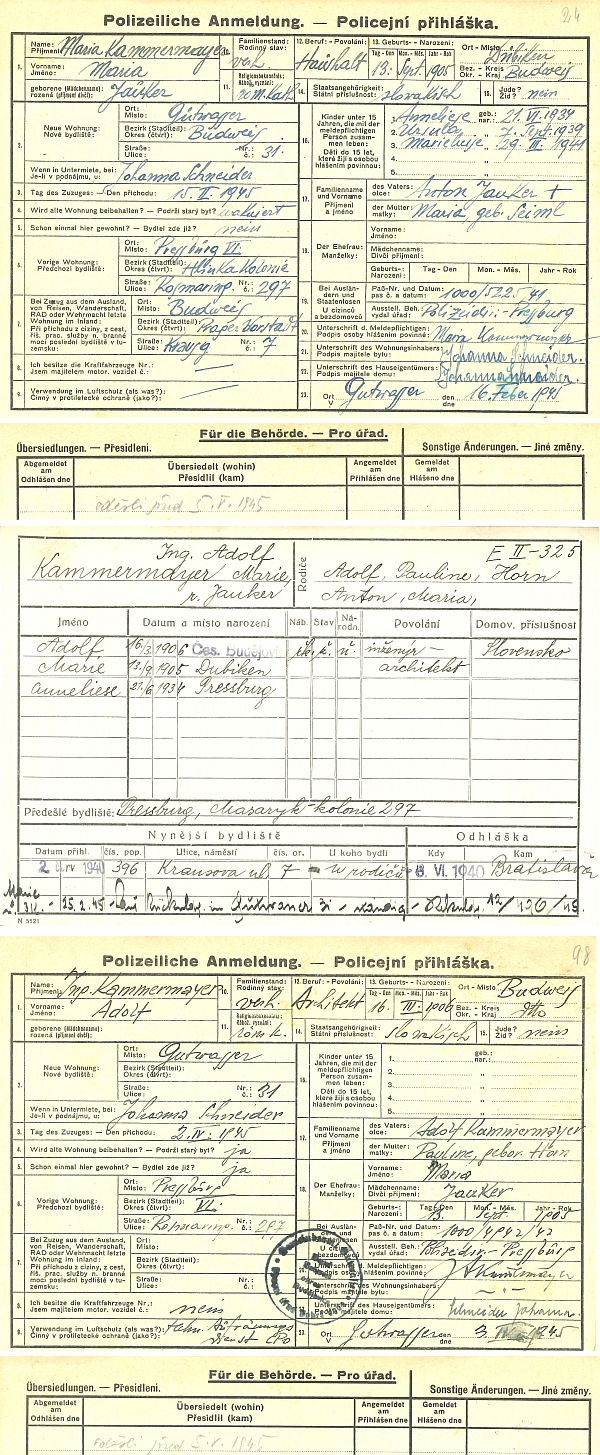 24
Polizeiliche Anmeldung. — Policejní přihláška.
1. Name: Příjmení: Maria Kammermayer
Vorname: Jméno: Maria
geborene (Mädchenname): rozená (příjmení dívčí): Jauker
10. Familienstand: Rodinný stav: verh.
11. Religionsbekenntnis: Nábož. vyznání: röm. kath.
12. Beruf - Povolání: Haushalt
13. Geburts- - Narození:
Tag - Den Mon. - Měs. Jahr - Rok
13. Sept. 1905
Ort - Místo Dubiken
Bez. - Kreis Okr. - Kraj Budweis
14. Staatsangehörigkeit: Státní příslušnost: slovakisch
15. Jude? Žid? nein
2. Neue Wohnung: Nové bydliště:
Ort: Místo: Gutwasser
Bezirk (Stadtteil): Okres (čtvrť): Budweis
Straße: Ulice: Nr.: č.: 31.
Wenn in Untermiete, bei: Je-li v podnájmu, u: Johanna Schneider
3. Tag des Zuzuges: — Den příchodu: 15. II. 1945
4. Wird alte Wohnung beibehalten? — Podrží starý byt?
5. Schon einmal hier gewohnt? — Bydlel zde již? nein
6. Vorige Wohnung: Předchozí bydliště:
Ort: Místo: Preßburg VI.
Bezirk (Stadtteil): Okres (čtvrť): Hlinka Kolonie
Straße: Ulice: Nr.: č.: 297
7. Bei Zuzug aus dem Ausland, von Reisen, Wanderschaft, RAD oder Wehrmacht letzte Wohnung im Inland:
Při příchodu z ciziny, z cest, říš. prac. služby n. branné moci poslední bydliště v tuzemsku:
Ort: Místo: Budweis
Bezirk (Stadtteil): Okres (čtvrť): Prager Vorstadt
Straße: Ulice: Nr.: č.: 7
8. Ich besitze die Kraftfahrzeuge Nr.: Jsem majitelem motor. vozidel č.: —
9. Verwendung im Luftschutz (als was?): Činný v protiletecké ochraně (jako?): —
16. Kinder unter 15 Jahren, die mit der meldepflichtigen Person zusammen leben:
Děti do 15 let, které žijí s osobou hlášením povinnou:
1. Anneliese geb.: nar.: 21. VI. 1934
2. Ursula „ 7. Sept. 1939
3. „ 29. III. 1941
4. „
5. „
17. Familienname und Vorname Příjmení a jméno
des Vaters: otce: Anton Jauker +
der Mutter: matky: Maria, geb. Seiml
18. Der Ehefrau: Manželky:
Vorname: Jméno:
Mädchenname: Dívčí příjmení:
Geburts-: Narození: Tag - Den Mon. - Měs. Jahr - Rok
19. Bei Ausländern und Staatenlosen U cizinců a bezdomovců
Paß-Nr. und Datum: pas č. a datum: 1000/5225/41
Ausstell. Beh.: vydal úřad: Polizeidir. Preßburg
20. Unterschrift d. Meldepflichtigen: Podpis osoby hlášením povinné: Maria Kammermayer
21. Unterschrift des Wohnungsinhabers: Podpis majitele bytu: Johanna Schneider.
22. Unterschrift des Hauseigentümers: Podpis majitele domu: Johanna Schneider.
23. Ort V Gutwasser den dne 16. Feber 1945
Für die Behörde. — Pro úřad.
Übersiedlungen. — Přesídlení.
Sonstige Änderungen. — Jiné změny.
Abgemeldet am Odhlášen dne
Übersiedelt (wohin) Přesídlil (kam)
Angemeldet am Přihlášen dne
Gemeldet am Hlášeno dne
odešli před 5. V. 1945
E II-325
Ing. Adolf
Kammermayer, Marie,
r. Jauker
Rodiče
Adolf, Pauline, Horn
Anton, Maria,
Jméno Datum a místo narození Náb. Stav Národn. Povolání Domov. příslušnost
Adolf 16/3 1906 Čes. Budějov řk. ž. n. inženýr - Slovensko
Marie 13/9 1905 Dubiken architekt
Anneliese 21/6 1934 Pressburg
Předešlé bydliště: Pressburg, Masaryk-kolonie 297
Nynější bydliště Odhláška
Datum přihl. čís. pop. Ulice, náměstí čís. or. U koho bydlí Kdy Kam
1940 396 Krausova ul. 7 u rodičů VI. 1940 Bratislava
Marie
25. 2. 45
N 5521
98
Polizeiliche Anmeldung. — Policejní přihláška.
1. Name: Příjmení: Ing. Kammermayer
Vorname: Jméno: Adolf
geborene (Mädchenname): rozená (příjmení dívčí):
10. Familienstand: Rodinný stav: verh.
11. Religionsbekenntnis: Nábož. vyznání: röm. k.
12. Beruf - Povolání: Architekt
13. Geburts- - Narození:
Tag - Den Mon. - Měs. Jahr - Rok
16. III. 1906
Ort - Místo Budweis
Bez. - Kreis Okr. - Kraj dtto
14. Staatsangehörigkeit: Státní příslušnost: slowakisch
15. Jude? Žid? nein
2. Neue Wohnung: Nové bydliště:
Ort: Místo: Gutwasser
Bezirk (Stadtteil): Okres (čtvrť):
Straße: Ulice: Nr.: č.: 31
Wenn in Untermiete, bei: Je-li v podnájmu, u: Johanna Schneider
3. Tag des Zuzuges: — Den příchodu: 2. IV. 1945
4. Wird alte Wohnung beibehalten? — Podrží starý byt? ja
5. Schon einmal hier gewohnt? — Bydlel zde již? ja
6. Vorige Wohnung: Předchozí bydliště:
Ort: Místo: Preßburg
Bezirk (Stadtteil): Okres (čtvrť): VI.
Straße: Ulice: Nr.: č.: 297
7. Bei Zuzug aus dem Ausland, von Reisen, Wanderschaft, RAD oder Wehrmacht letzte Wohnung im Inland:
Při příchodu z ciziny, z cest, říš. prac. služby n. branné moci poslední bydliště v tuzemsku:
Ort: Místo:
Bezirk (Stadtteil): Okres (čtvrť):
Straße: Ulice: Nr.: č.:
8. Ich besitze die Kraftfahrzeuge Nr.: Jsem majitelem motor. vozidel č.: nein
9. Verwendung im Luftschutz (als was?): Činný v protiletecké ochraně (jako?):
16. Kinder unter 15 Jahren, die mit der meldepflichtigen Person zusammen leben:
Děti do 15 let, které žijí s osobou hlášením povinnou:
1. geb.: nar.:
2. „
3. „
4. „
5. „
17. Familienname und Vorname Příjmení a jméno
des Vaters: otce: Adolf Kammermayer
der Mutter: matky: Pauline, gebor. Horn
18. Der Ehefrau: Manželky:
Vorname: Jméno: Maria
Mädchenname: Dívčí příjmení: Jauker
Geburts-: Narození: Tag - Den 13. Mon. - Měs. Sept. Jahr - Rok 1905
Paß-Nr. und Datum: pas č. a datum: 1000/4942/42
Ausstell. Beh.: vydal úřad: Polizeidir. Preßburg
Meldepflichtigen:
Unterschrift des Wohnungsinhabers:
Unterschrift des Hauseigentümers: Schneider Johanna.
23. Ort V Gutwasser den dne 3. IV. 1945
Für die Behörde. — Pro úřad.
Übersiedlungen. — Přesídlení.
Sonstige Änderungen. — Jiné změny.
Abgemeldet am Odhlášen dne
Übersiedelt (wohin) Přesídlil (kam)
Angemeldet am Přihlášen dne
Gemeldet am Hlášeno dne
odešli před 5. V. 1945